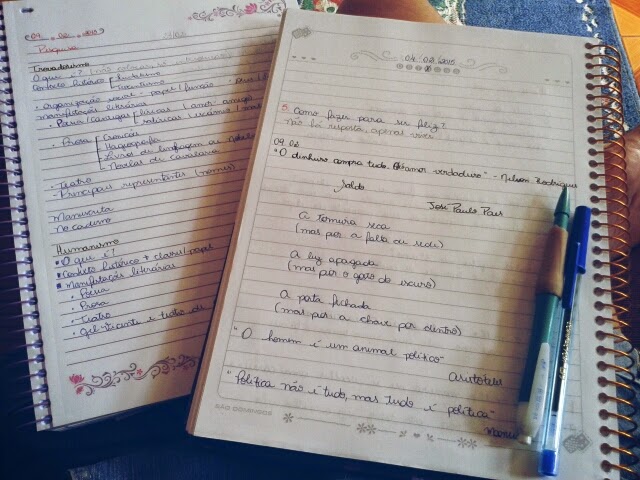 09. 02. 2015
Pesquisa
Trovadorismo
O que é?
Contexto histórico
Teocentrismo
organização social - papel / função
manifestações literárias
Poesia / Cantigas líricas (amor amigo)
satíricas (escárnio
Prosa
Crônicas
Hagiografia
Livros de linhagem ou
Novelas de cavalaria
Teatro
Principais representantes (nomes)
Manuscrita
No caderno
Humanismo
O que é?
Contexto histórico + classes / papel
Manifestações literárias
Poesia
Prosa
Teatro
Gil Vicente e
04. 02. 2015
5. Como fazer para ser feliz?
Não há resposta, apenas viver
09.02
"O dinheiro compra tudo. Até amor verdadeiro" - Nelson Rodrigues
Saldo
José Paulo Paes
A torneira seca
(mas pior a falta de sede)
A luz apagada
(mas pior o gosto do escuro)
A porta fechada
(mas pior a chave por dentro)
"O homem é um animal político"
Aristóteles
"Política não é tudo, mas tudo é política"
SÃO DOMINGOS